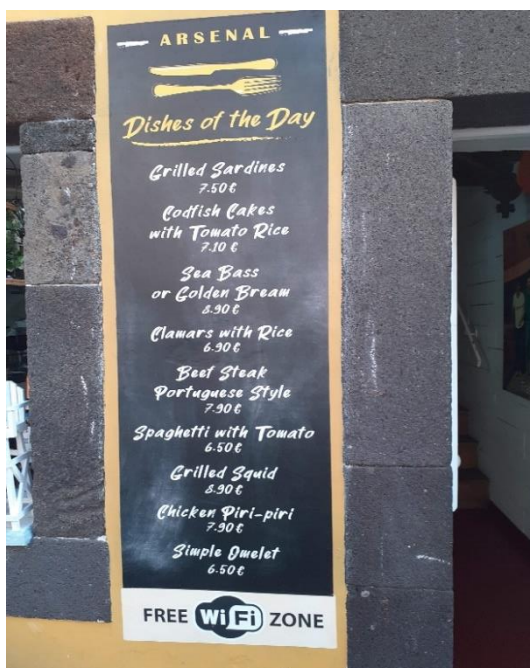 ARSENAL
Dishes of the Day
Grilled Sardines
7.50€
Codfish Cakes
with Tomato Rice
7.10 €
Sea Bass
or Golden Bream
8.90€
Clamars with Rice
6.90€
Beef Steak
Portuguese Style
7.90€
Spaghetti with Tomato
6.50€
Grilled Squid
8.90€
Chicken Piri-piri
7.90€
Simple Omelet
6.50€
FREE WiFi ZONE